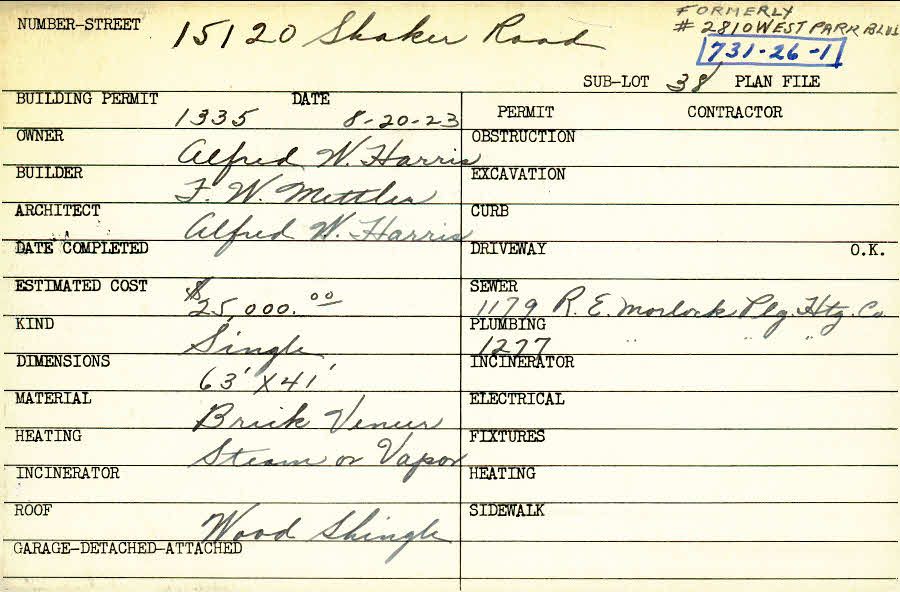 FORMERLY
NUMBER-STREET 15120 Shaker Road # 2810 WEST PARK BLVD
731-26-1
SUB-LOT 38 PLAN FILE
BUILDING PERMIT DATE PERMIT CONTRACTOR
1335 8-20-23
OWNER OBSTRUCTION
Alfred W. Harris
BUILDER EXCAVATION
F. W. Mettler
ARCHITECT CURB
Alfred W. Harris
DATE COMPLETED DRIVEWAY O.K.
ESTIMATED COST SEWER
$25,000.00 1179 R. E. Morlock Plg. Htg. Co
KIND PLUMBING
Single 1277 " " "
DIMENSIONS INCINERATOR
63' X 41'
MATERIAL ELECTRICAL
Brick Veneer
HEATING FIXTURES
Steam or Vapor
INCINERATOR HEATING
ROOF SIDEWALK
Wood Shingle
GARAGE-DETACHED-ATTACHED